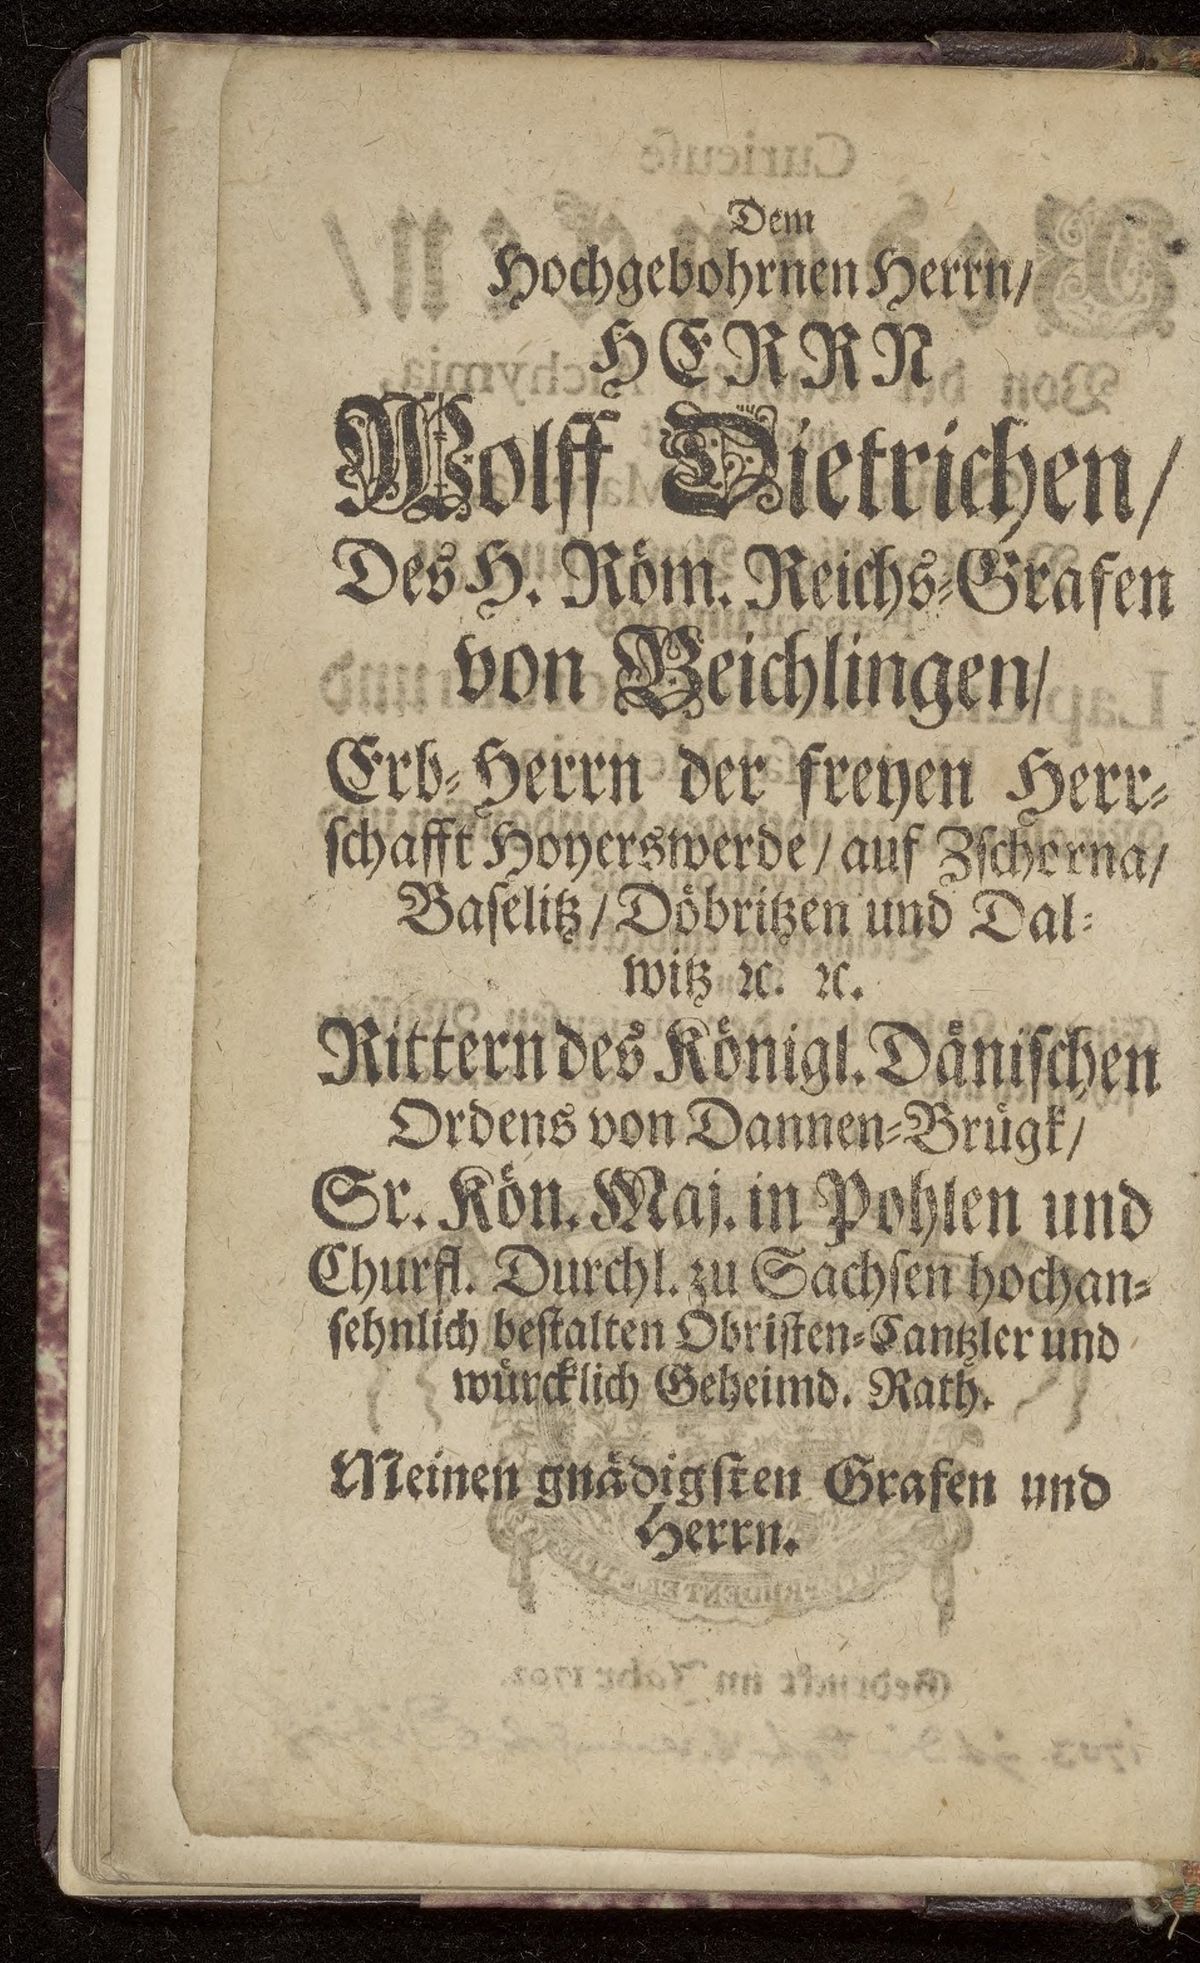 Dem
Hochgebohrnen Herrn/
HERRN
Wolff Dietrichen/
Des H. Röm. Reichs-Grafen
von Beichlingen/
Erb-Herrn der freyen Herr-
schafft Hoyerswerde/ auf Zschorna/
Baselitz/ Döbritzen und Dal-
witz ꝛc. ꝛc.
Rittern des Königl. Dänischen
Ordens von Dannen-Brügk/
Sr. Kön. Maj. in Pohlen und
Churfl. Durchl. zu Sachsen hochan-
sehnlich bestalten Obristen-Cantzler und
würcklich Geheimd. Rath.
Meinen gnädigsten Grafen und
Herrn.